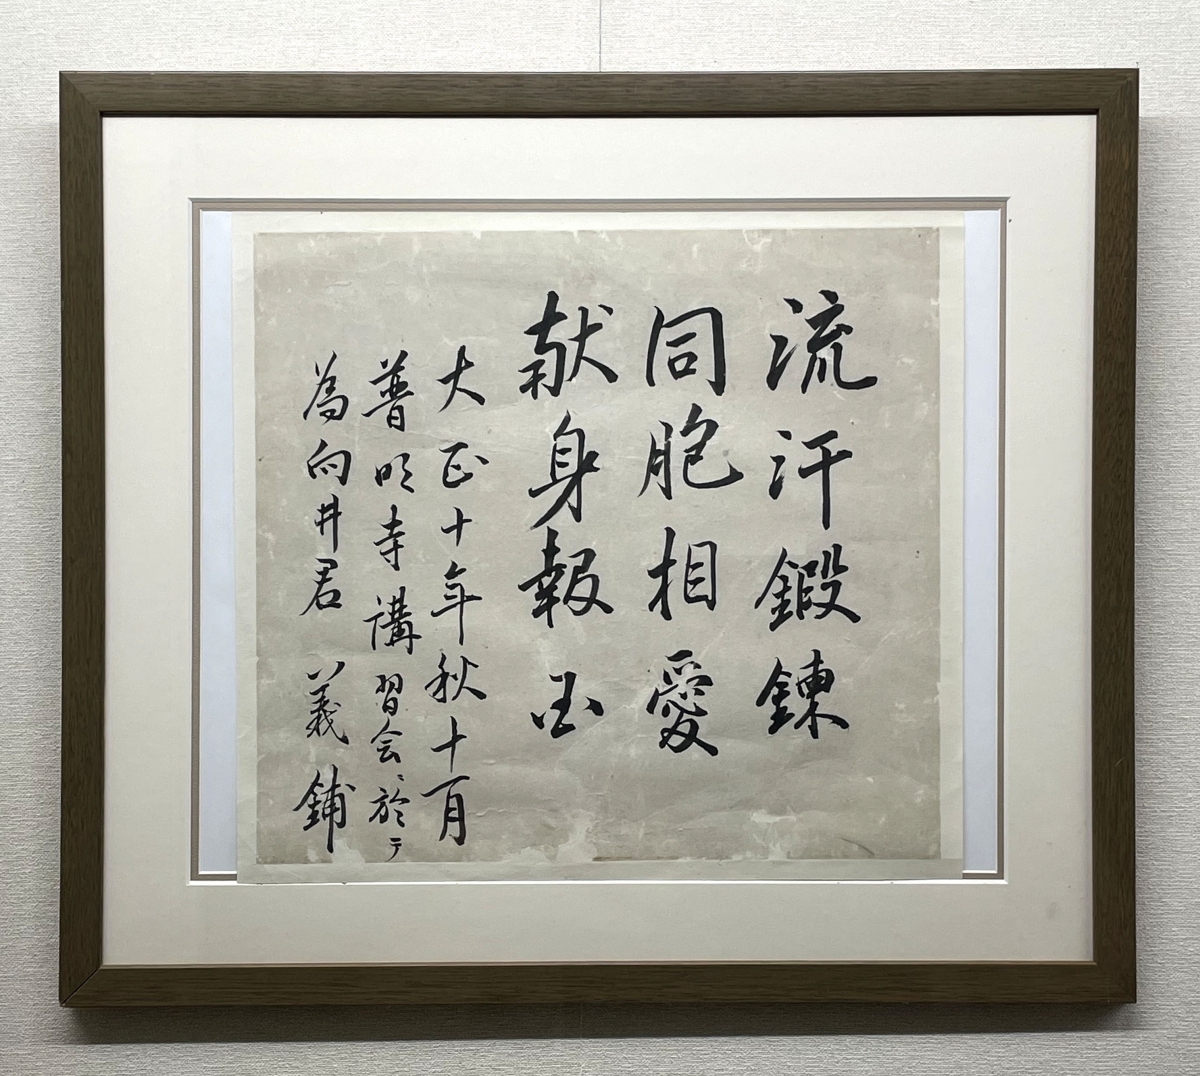 流汗鍛錬
同胞相愛
献身報国
大正十年秋十一月
普明寺講習会ニ於テ
為向井君 義鋪